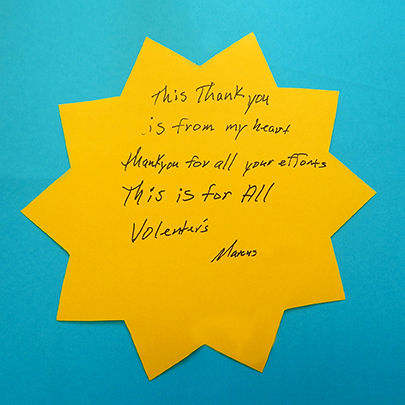 This Thank you
is from my heart
thankyou for all your efforts
This is for All
Volentur's
Marcus